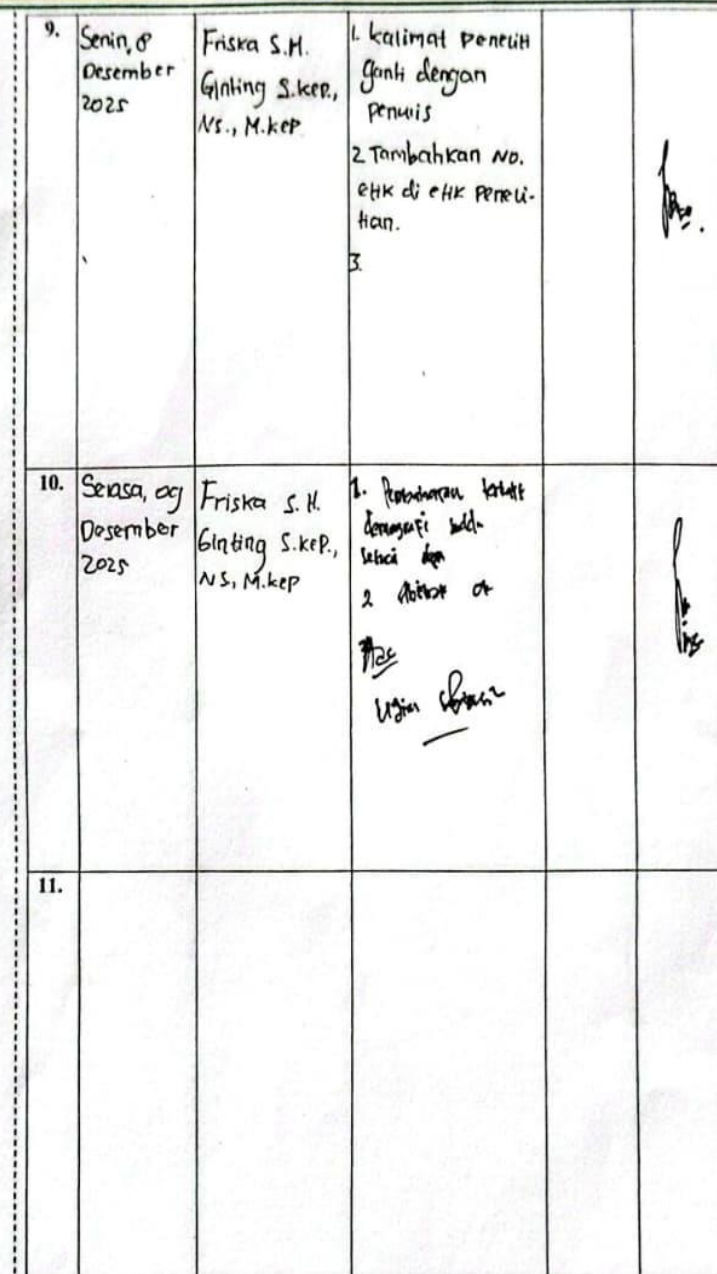 9.
Senin, 8
Desember
2025
Friska S.H.
Ginting S.kep.,
Ns., M.kep
1. kalimat peneliti
ganti dengan
penulis
2 Tambahkan No.
etik di etik peneli-
tian.
3.
10.
Selasa, 09
Desember
2025
Friska S.H.
Ginting S.kep.,
NS, M.kep
1. terkait
demografi
2
Acc
Ujian
11.